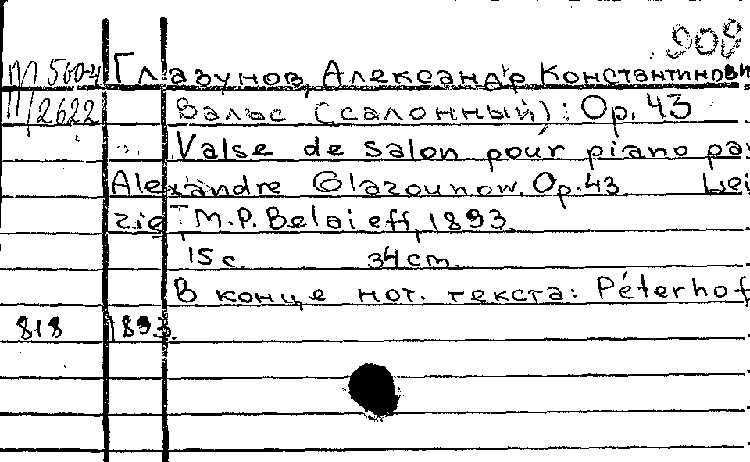 909
М 560-4 Глазунов, Александр Константинови
П/2622 Вальс (салонный): Op. 43
Valse de salon pour piano pa
Alexandre Glazounow. Op. 43 Lei
zig, M.P. Belaieff, 1893.
15 с. 34 cm.
В конце нот. текста: Péterhof
818 1893.